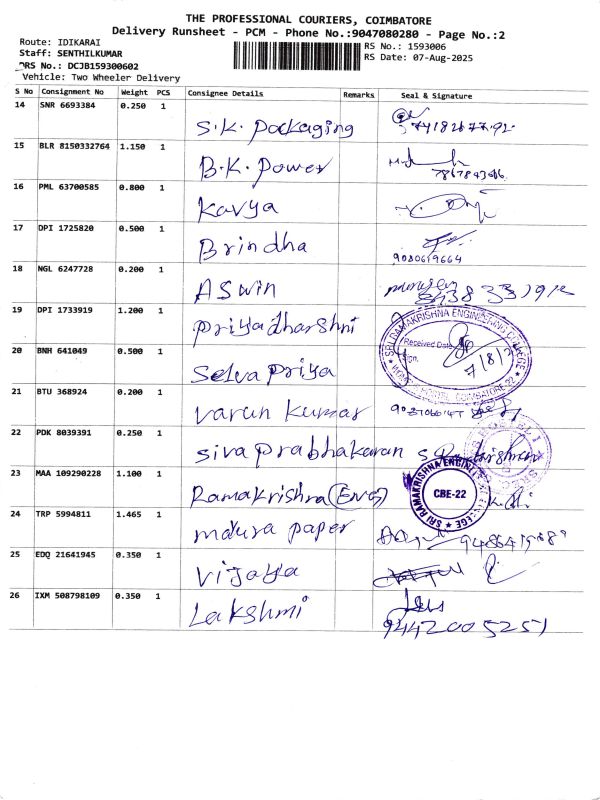 THE PROFESSIONAL COURIERS, COIMBATORE
Delivery Runsheet - PCM - Phone No.:9047080280 - Page No.:2
Route: IDIKARAI
RS No.: 1593006
Staff: SENTHILKUMAR
RS Date: 07-Aug-2025
DRS No.: DCJB159300602
Vehicle: Two Wheeler Delivery
S No Consignment No Weight PCS Consignee Details Remarks Seal & Signature
14 SNR 6693384 0.250 1 S.K. Packaging
15 BLR 8150332764 1.150 1 B.K. Power
16 PML 63700585 0.800 1 Kavya
17 DPI 1725820 0.500 1 Brindha 9080619664
18 NGL 6247728 0.200 1 ASWin
19 DPI 1733919 1.200 1 Priyadharshni
SRI RAMAKRISHNA ENGINEERING COLLEGE
Received Date
Sign.
7/8/25
COIMBATORE-22
20 BNH 641049 0.500 1 Selva Priya
21 BTU 368924 0.200 1 Varun Kumar
22 PDK 8039391 0.250 1 Siva Prabhakaran
23 MAA 109290228 1.100 1 Ramakrishna (Eng)
SRI RAMAKRISHNA ENGINEERING COLLEGE
CBE-22
24 TRP 5994811 1.465 1 madura paper
25 EDQ 21641945 0.350 1 Vijaya
26 IXM 508798109 0.350 1 Lakshmi
9442005251